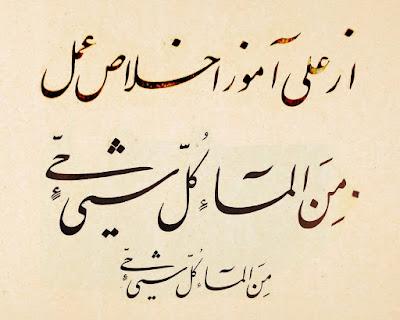 از علی آموز اخلاص عمل
مِنَ المآءِ كُلّ شیءٍ حیّ
مِنَ المآءِ كُلّ شیءٍ حیّ